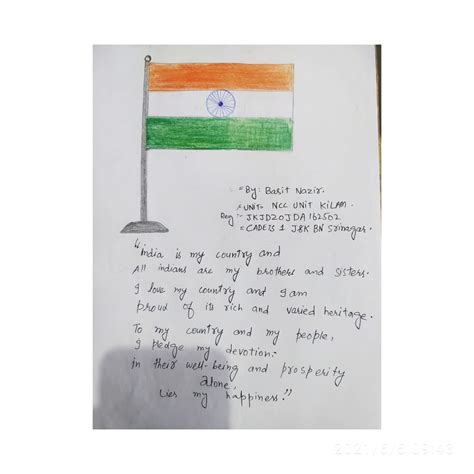 = By: Basit Nazir.
= UNIT= NCC UNIT KILAM.
Reg :- JKJD20JDA162502
= CADETS 1 J&K BN Srinagar.
"India is my country and
All indians are my brothers and sisters.
I love my country and I am
proud of its rich and varied heritage.
To my country and my people,
I Pledge my devotion.
in their well-being and prosperity
alone,
Lies my happiness."
2021/6/6 19:43